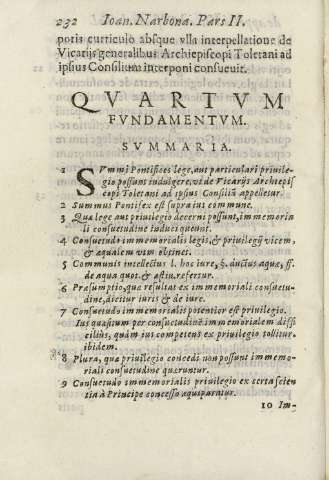 232 Ioan. Narbona. Pars II.
poris curriculo absque vlla interpellatione de
Vicarijs generalibus Archiepiscopi Toletani ad
ipsius Consilium interponi consueuit.
QVARTVM
FVNDAMENTVM.
SVMMARIA.
1 SVmmi Pontifices lege, aut particulari priuile-
gio possunt indulgere, vt de Vicarijs Archiepis
copi Toletani ad ipsius Consiliũ appelletur.
2 Summus Pontifex est supra ius commune.
3 Quæ lege aut priuilegio decerni possunt, immemoria
li consuetudine induci queunt.
4 Consuetudo immemorialis legis, & priuilegij vicem,
& æqualem vim obtinet.
5 Communis intellectus l. hoc iure, §. ductus aquæ, ff.
de aqua quot. & æstiu, refertur.
6 Præsumptio, quæ resultat ex immemoriali consuetu-
dine, dicitur iuris & de iure.
7 Consuetudo immemorialis potentior est priuilegio.
Ius quæsitum per consuetudinẽ immemorialem diffi
cilius, quàm ius competens ex priuilegio tollitur.
ibidem.
8 Plura, quæ priuilegio concedi non possunt immemo-
riali consuetudine quæruntur.
9 Consuetudo immemorialis priuilegio ex certa scien
tia à Principe concesso æquiparatur.
10 Im-